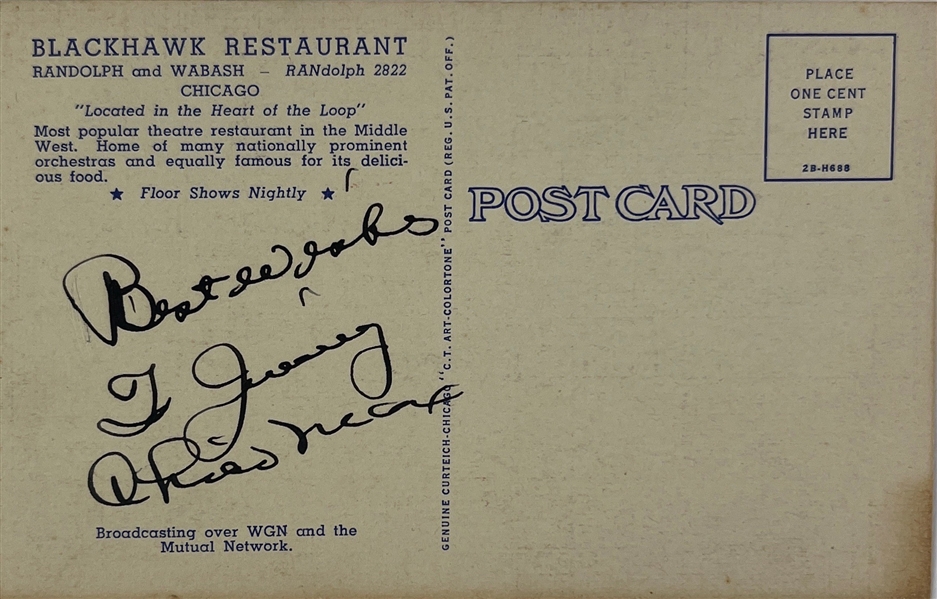 BLACKHAWK RESTAURANT
RANDOLPH and WABASH – RANdolph 2822
CHICAGO
"Located in the Heart of the Loop"
Most popular theatre restaurant in the Middle
West. Home of many nationally prominent
orchestras and equally famous for its delici-
ous food.
★ Floor Shows Nightly ★
Best Wishes
To Jimmy
Chico Marx
Broadcasting over WGN and the
Mutual Network.
GENUINE CURTEICH-CHICAGO "C.T. ART-COLORTONE" POST CARD (REG. U.S. PAT. OFF.)
POST CARD
PLACE
ONE CENT
STAMP
HERE
2B-H688